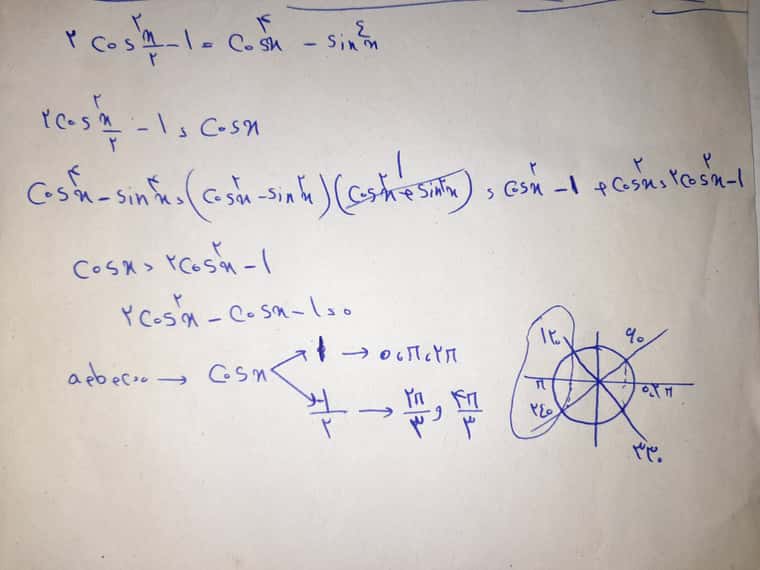 ۲ cos²x/۲ - ۱ = cos⁴x - sin⁴x
۲cos²x/۲ - ۱ = cosx
cos⁴x - sin⁴x = (cos²x - sin²x)(cos²x + sin²x) = cos²x - ۱ + cos²x = ۲cos²x - ۱
۱
cosx = ۲cos²x - ۱
۲cos²x - cosx - ۱ = ۰
a+b+c=۰ → cosx
۱ → ۰،π،۲π
-۱/۲ → ۲π/۳ و ۴π/۳
۱۲۰
۶۰
π
۰،۲π
۲۴۰
۳۳۰